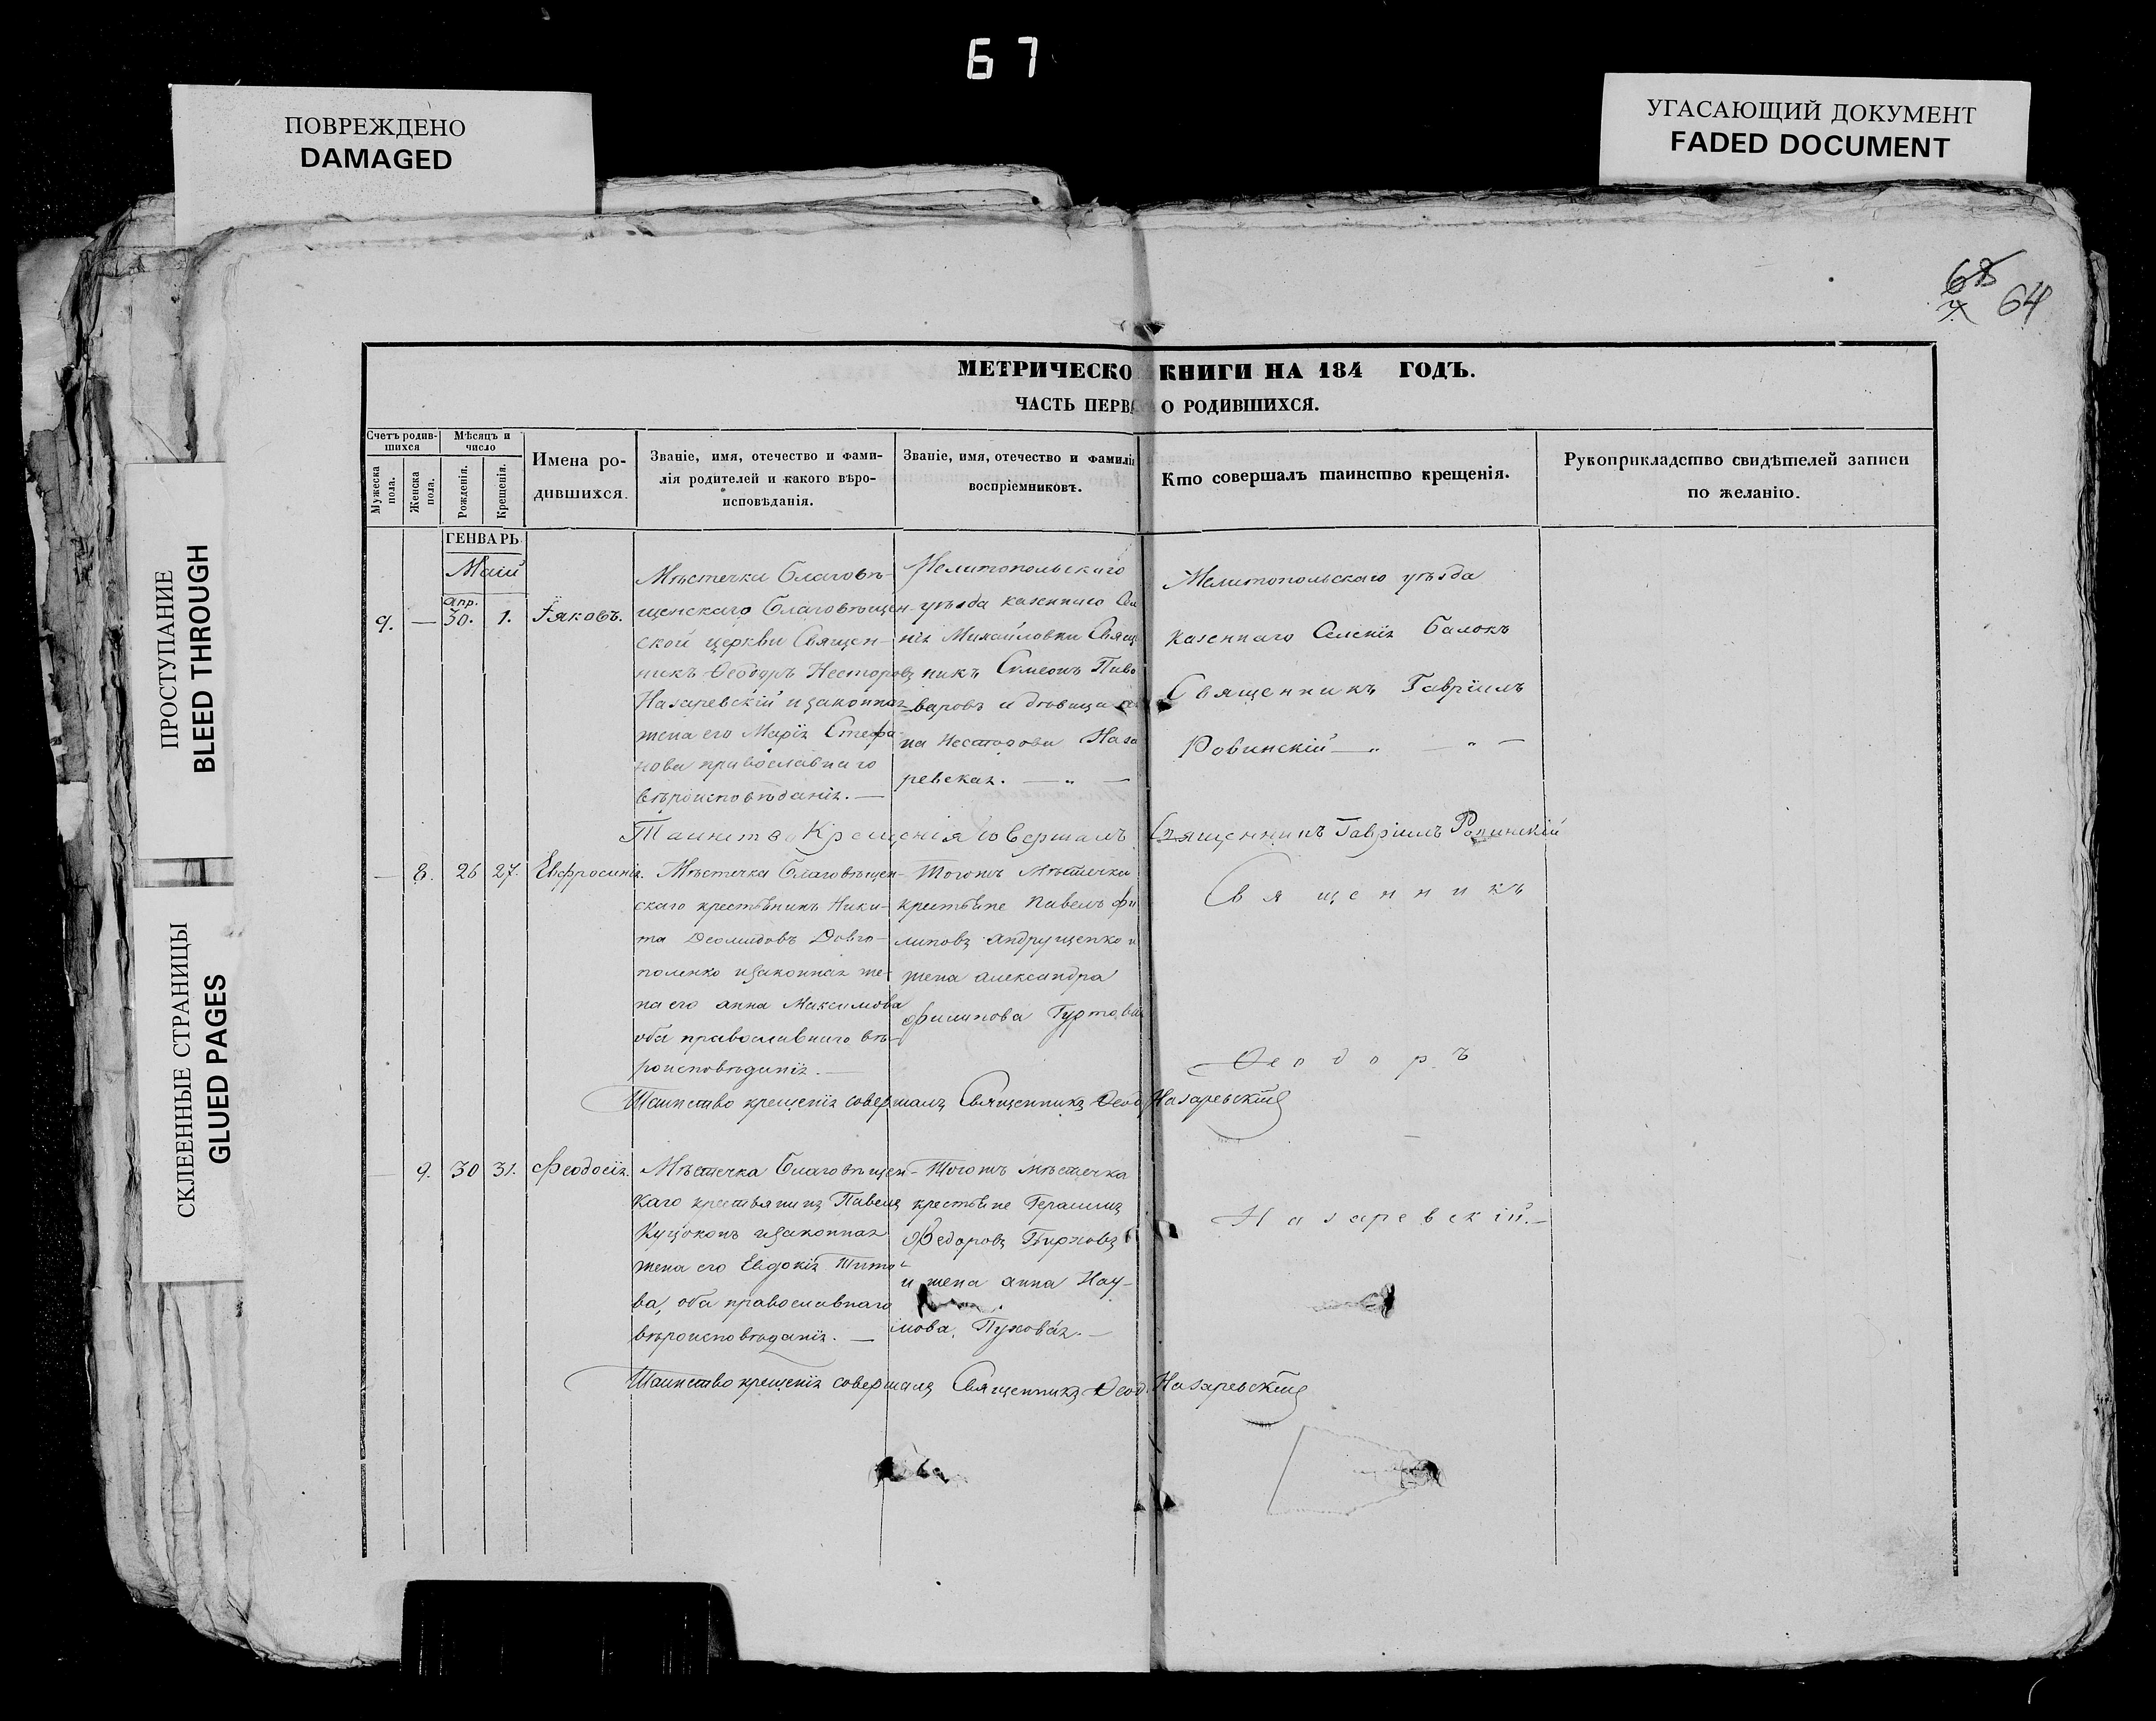 67
ПОВРЕЖДЕНО
DAMAGED
УГАСАЮЩИЙ ДОКУМЕНТ
FADED DOCUMENT
ПРОСТУПАНИЕ
BLEED THROUGH
СКЛЕЕННЫЕ СТРАНИЦЫ
GLUED PAGES
68
64
МЕТРИЧЕСКО КНИГИ НА 184 ГОДЪ.
ЧАСТЬ ПЕРВА О РОДИВШИХСЯ.
Счетъ родив-
шихся
Мужеска
пола.
Женска
пола.
Мѣсяцъ и
число
Рожденія.
Крещенія.
Имена ро-
дившихся.
Званіе, имя, отечество и фами-
лія родителей и какого вѣро-
исповѣданія.
Званіе, имя, отечество и фамилія
воспріемниковъ.
Кто совершалъ таинство крещенія.
Рукоприкладство свидѣтелей записи
по желанію.
ГЕНВАРЬ.
Маій
9. — апр. 30. 1. Іаковъ.
Мѣстечка Благовѣ-
щенскаго Благовѣщен-
ской церкви Священ-
никъ Ѳеодоръ Несторовъ
Назаревскій и законная
жена его Марія Стефа-
нова православнаго
вѣроисповѣданія. —
Мелитопольскаго
уѣзда казеннаго Се
нія Михайловки Свящ
никъ Симеонъ Пиво
варовъ и дѣвица
на Несторова Наза
ревская. — „ —
Мелитопольскаго уѣзда
казеннаго Селенія Балокъ
Священникъ Гавріилъ
Ровинскій — „ — „ —
Таинство Крещенія совершалъ Священникъ Гавріилъ Ровинскій
— 8. 26 27. Евфросинія.
Мѣстечка Благовѣщен-
скаго крестьянинъ Ники-
та Деомидовъ Довго-
поленко и законная же-
на его анна Максимова
оба православнаго вѣ-
роисповѣданія. —
Тогожъ Мѣстечка
крестьяне Павелъ Фи
липовъ Андрущенко и
жена александра
Филипова Гуртовая
Священникъ
Ѳеодоръ
Таинство крещенія совершалъ Священникъ Ѳеод. Назаревскій
— 9. 30 31. Феодосія.
Мѣстечка Благовѣщен-
каго крестьянинъ Павелъ
Куцоконъ и законная
жена его Евдокія Тито-
ва, оба православнаго
вѣроисповѣданія. —
Тогожъ мѣстечка
крестьяне Герасимъ
Федоровъ
и жена анна Нау-
мова Пуховая. —
Назаревскій. —
Таинство крещенія совершалъ Священникъ Ѳеод. Назаревскій